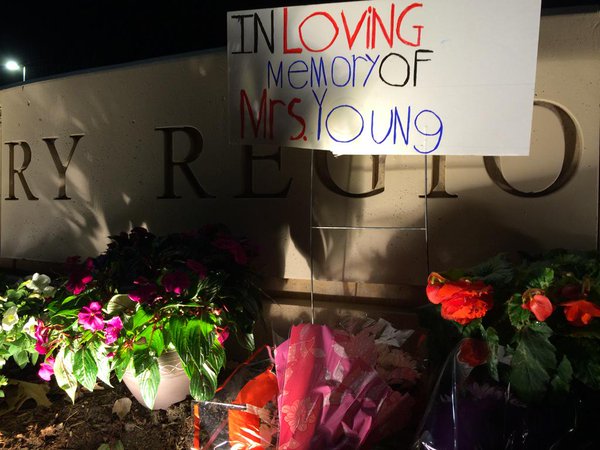 IN LOVING
MEMORY OF
MRS. YOUNG
RY REGIO